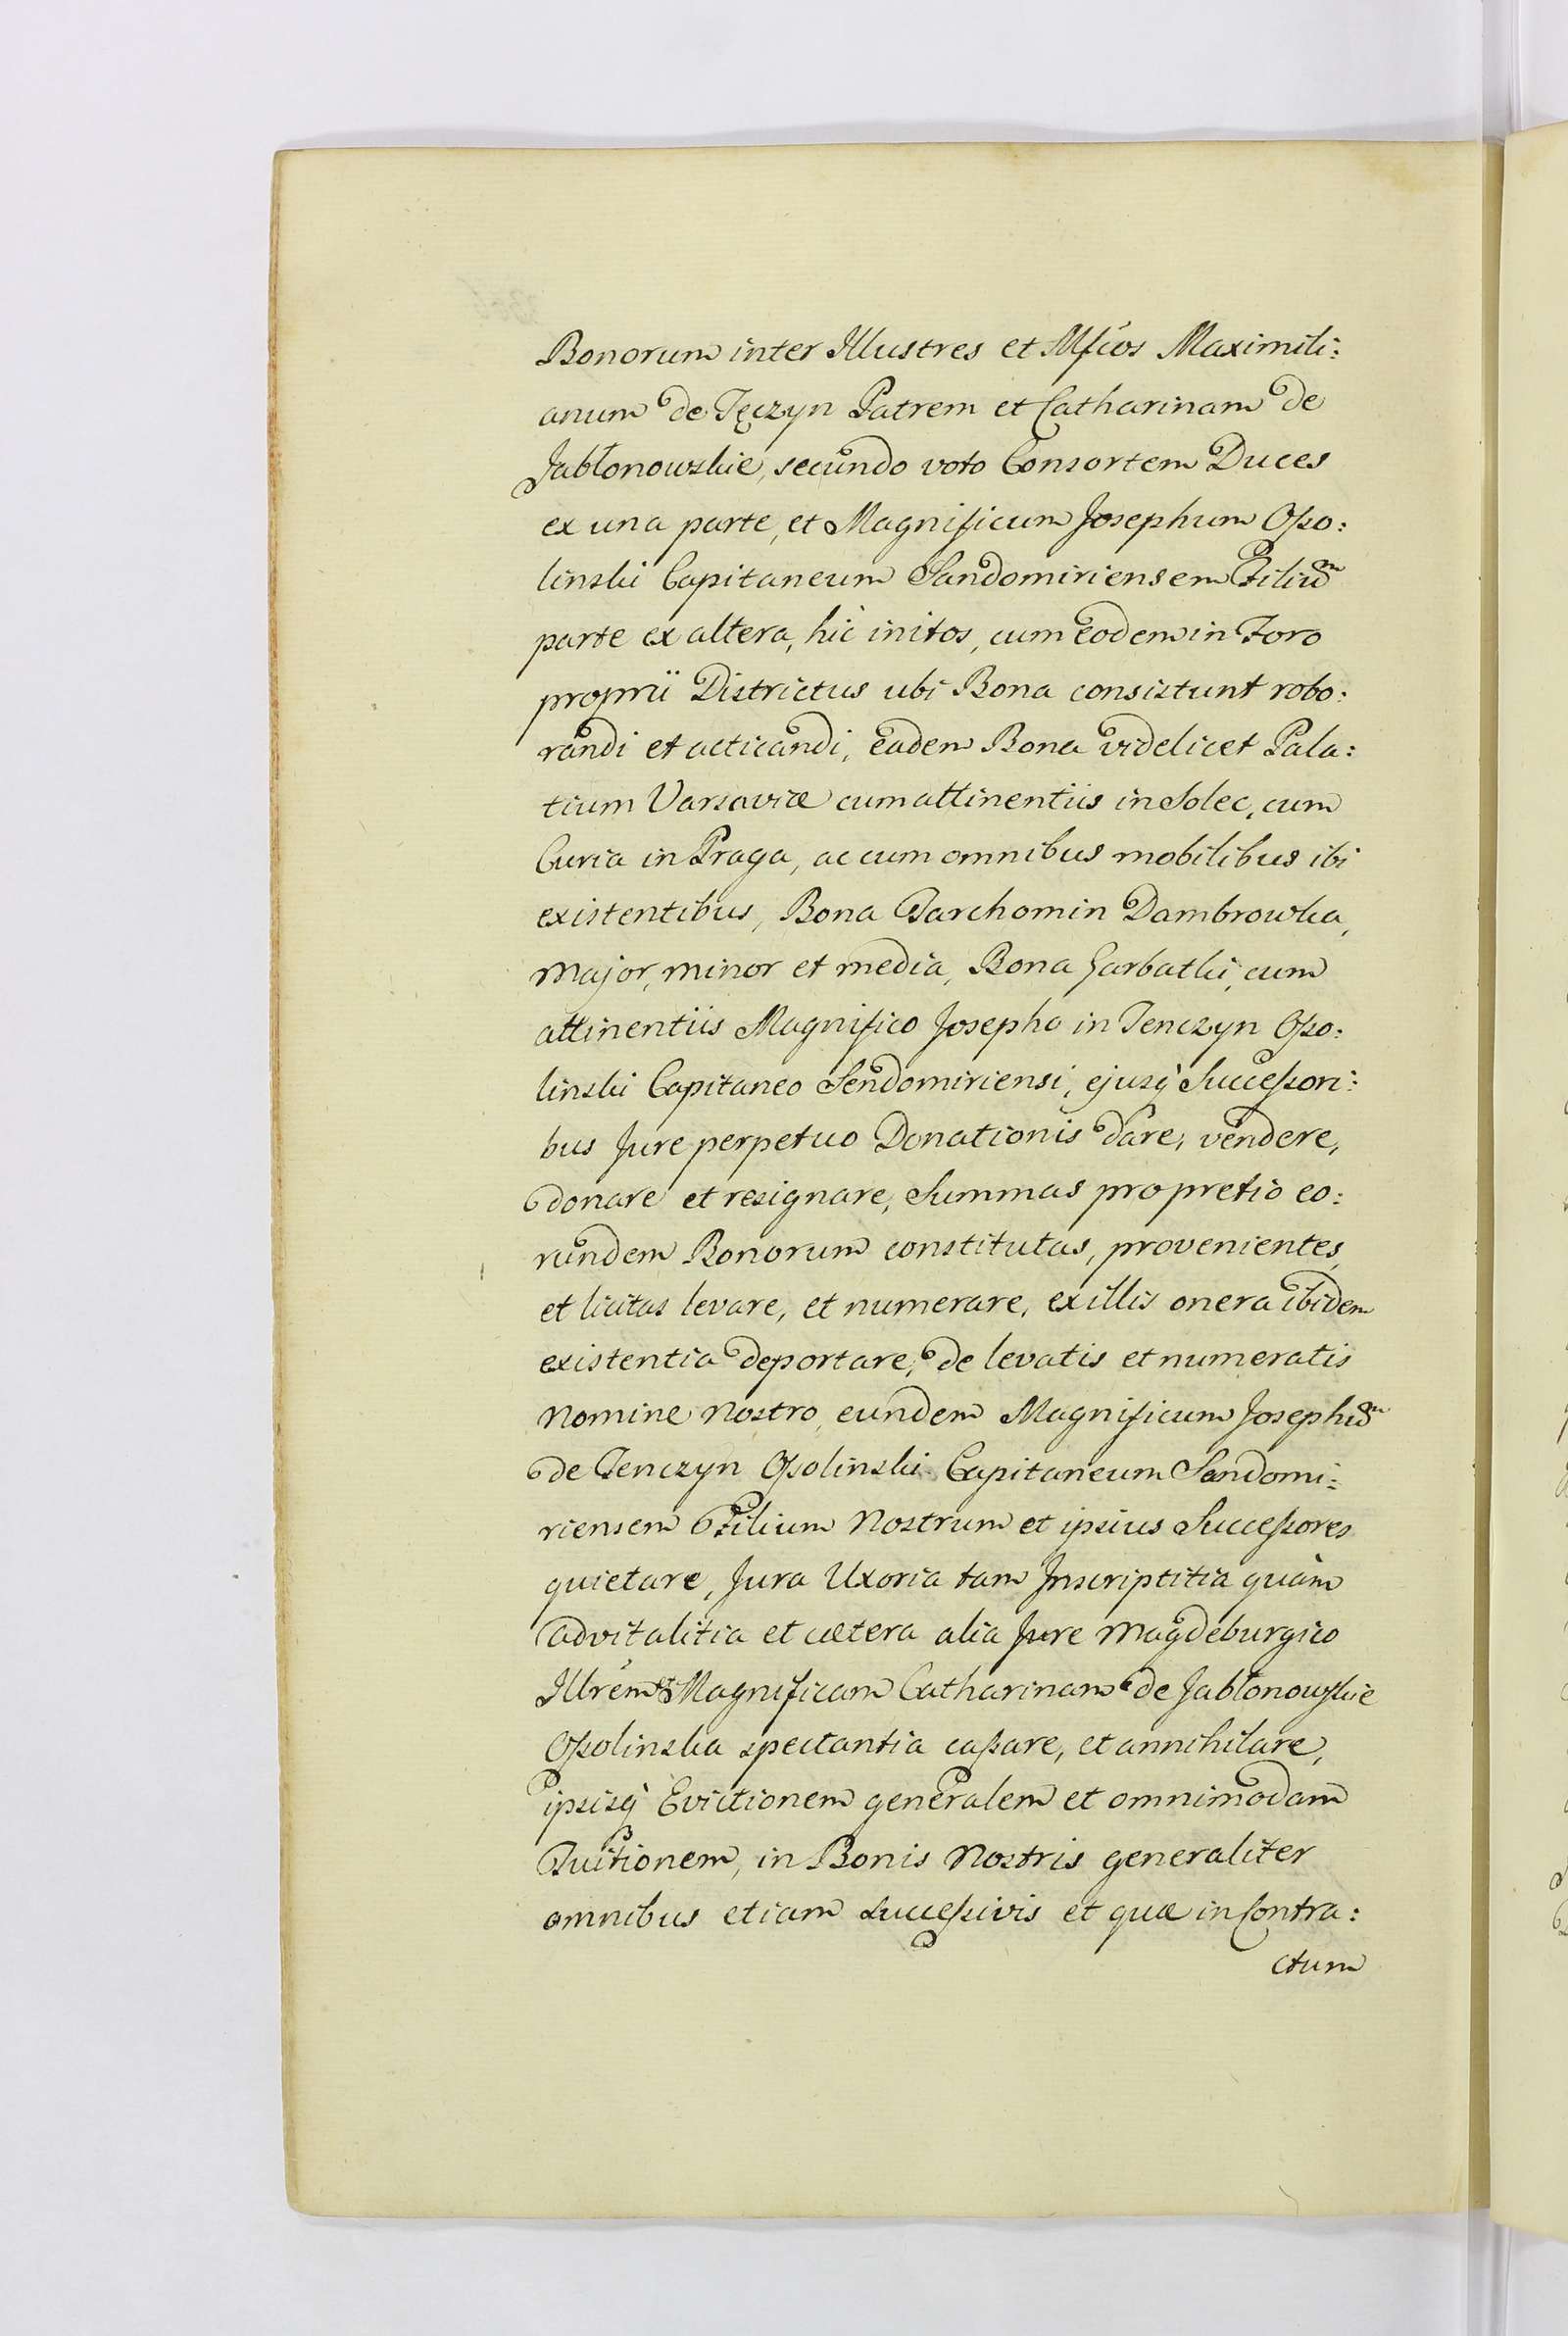 Bonorum inter Illustres et Mf̃cos Maximili:
anum de Tęczyn Patrem et Catharinam de
Jabłonowskie, secundo voto Consortem Duces
ex una parte, et Magnificum Josephum Oßo:
linski Capitaneum Sandomiriensem Filiũm
parte ex altera, hic initos, cum eodem in Foro
proprii Districtus ubi Bona consistunt robo:
randi et acticandi, eadem Bona videlicet Pala:
tium Varsaviæ cum attinentiis in Solec, cum
Curia in Praga, ac cum omnibus mobilibus ibi
existentibus, Bona Tarchomin Dambrowka,
major, minor et media, Bona Garbatki, cum
attinentiis Magnifico Josepho in Tenczyn Oßo:
linski Capitaneo Sendomiriensi, ejusq̀ Succeßori:
bus Jure perpetuo Donationis dare, vendere,
donare et resignare, Summas pro pretio eo:
rundem Bonorum constitutas, provenientes,
et licitas levare, et numerare, ex illis onera ibidem
existentia deportare, de levatis et numeratis
Nomine Nostro, eundem Magnificum Josephũm
de Tenczyn Oßolinski Capitaneum Sandomi:
riensem Filium Nostrum et ipsius Succeßores
quietare, Jura Uxoria tam Inscriptitia quàm
Advitalitia et cætera alia Jure Magdeburgico
Illrem et Magnificam Catharinam de Jabłonowskie
Oßolinska spectantia caßare, et annihilare,
ipsisq̀ Evictionem generalem et omnimodam
Tuitionem, in Bonis Nostris generaliter
omnibus etiam succeßivis et quæ in Contra:
ctum